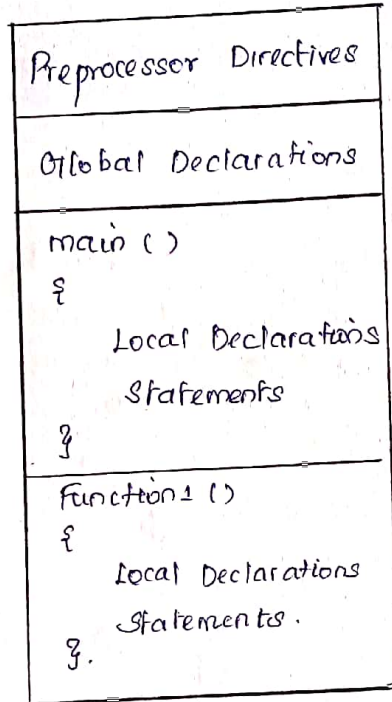 Preprocessor Directives
Global Declarations
main ()
{
Local Declarations
Statements
}
Function1 ()
{
Local Declarations
Statements.
}.